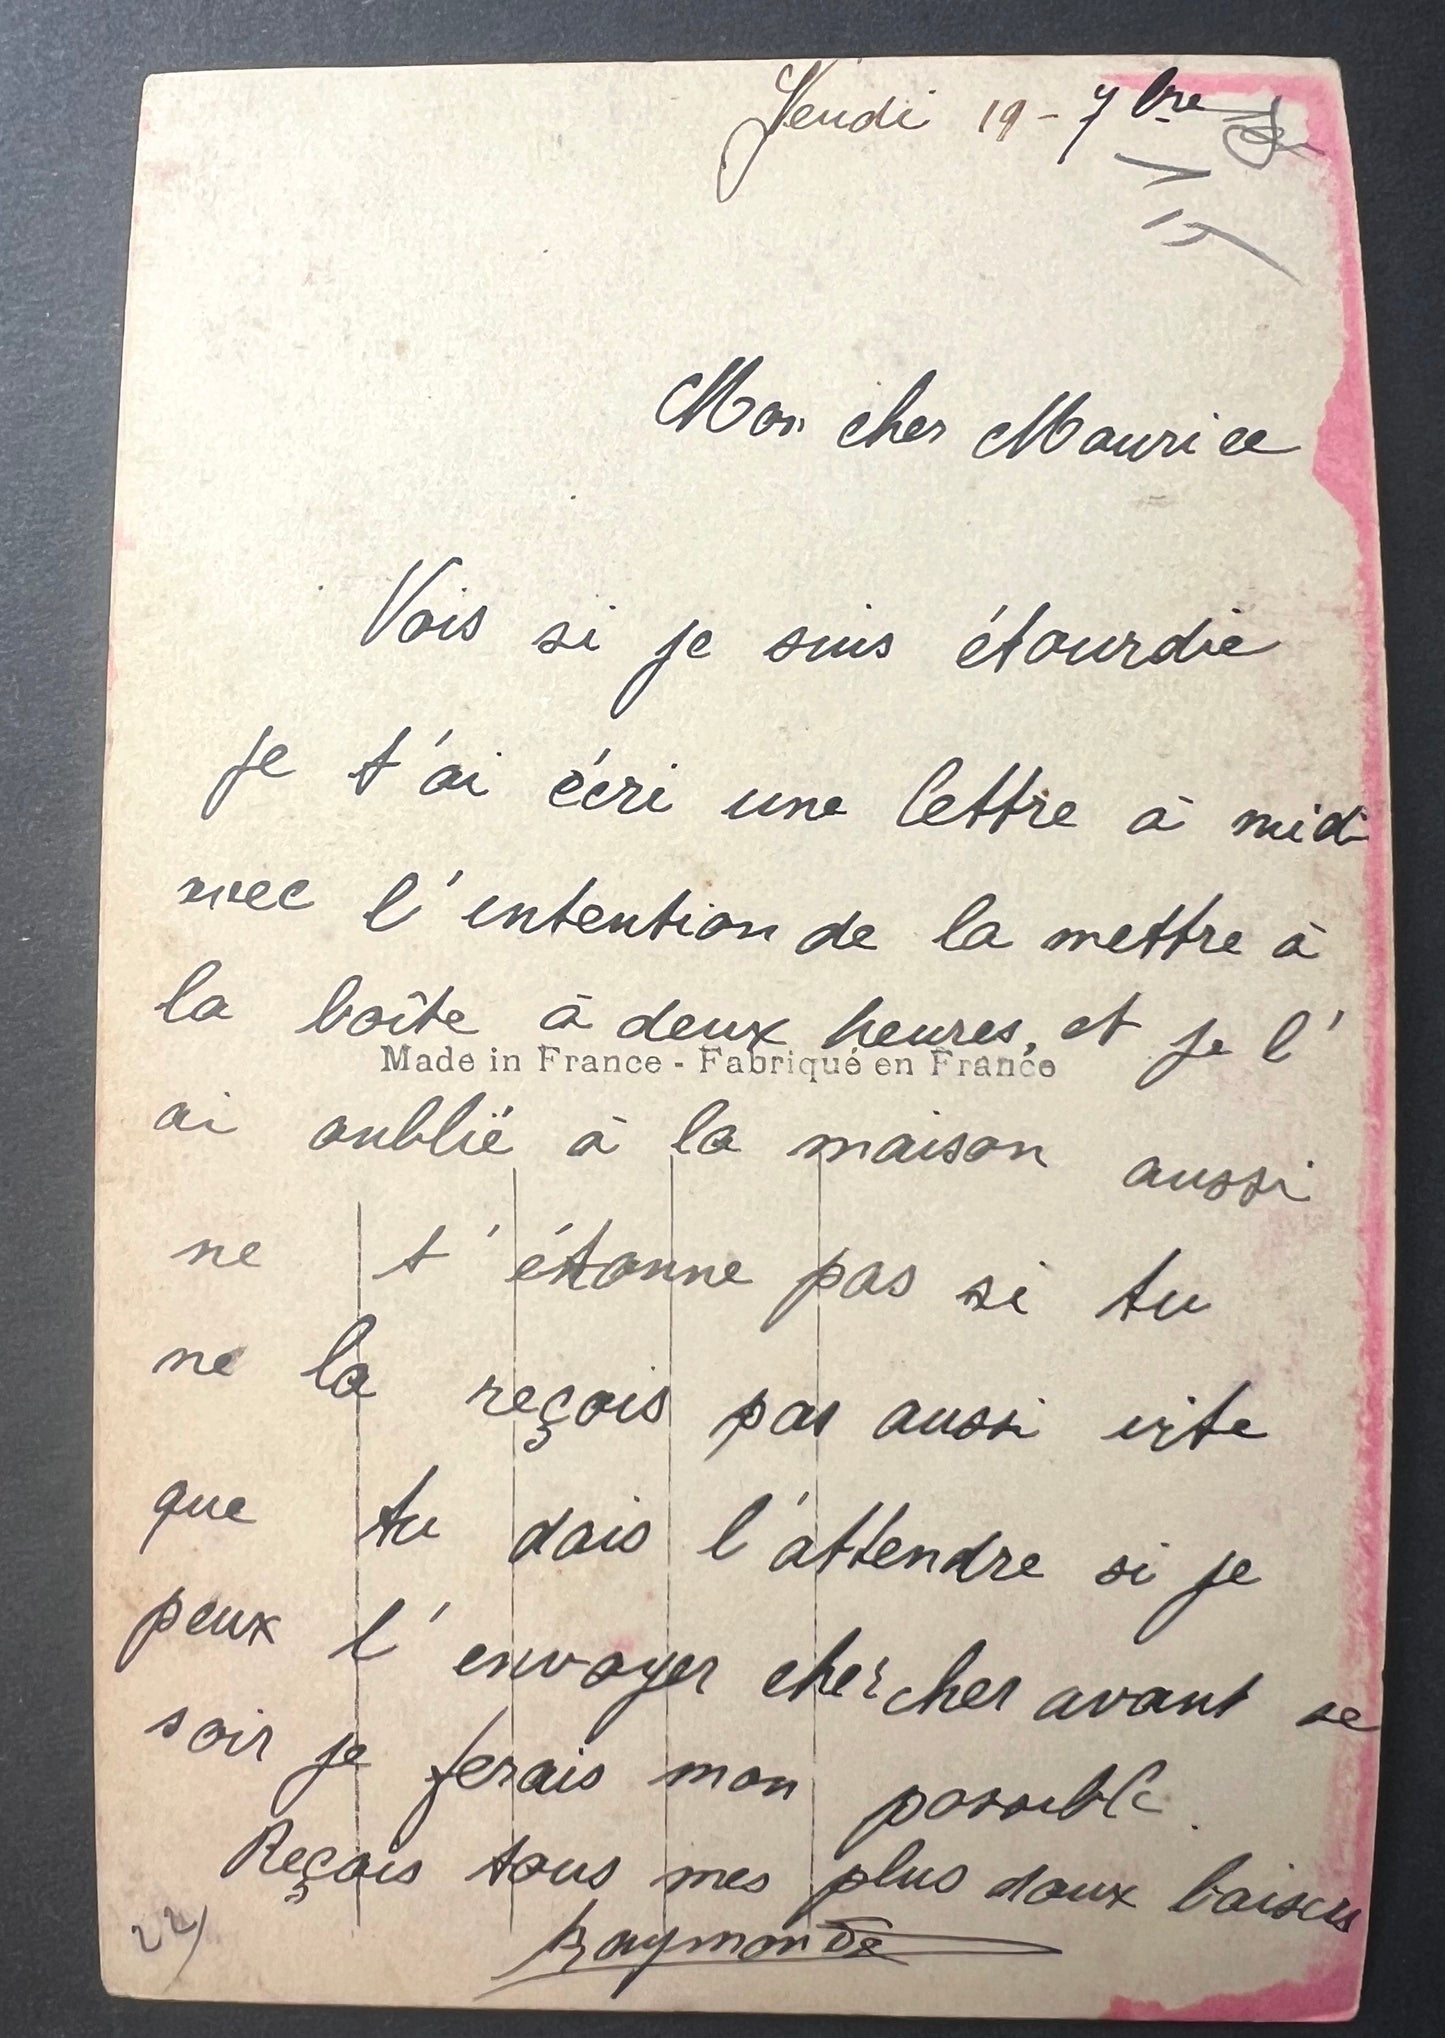 Jeudi 19 - 7bre
15
Mon cher Maurice
Vois si je suis étourdie
je t'ai écri une lettre à midi
avec l'intention de la mettre à
la boîte à deux heures, et je l'
Made in France - Fabriqué en France
ai oublié à la maison aussi
ne t'étonne pas si tu
ne la reçois pas aussi vite
que tu dois l'attendre si je
peux l'envoyer chercher avant se
soir je ferais mon possible.
Reçois tous mes plus doux baisers
Raymonde
22